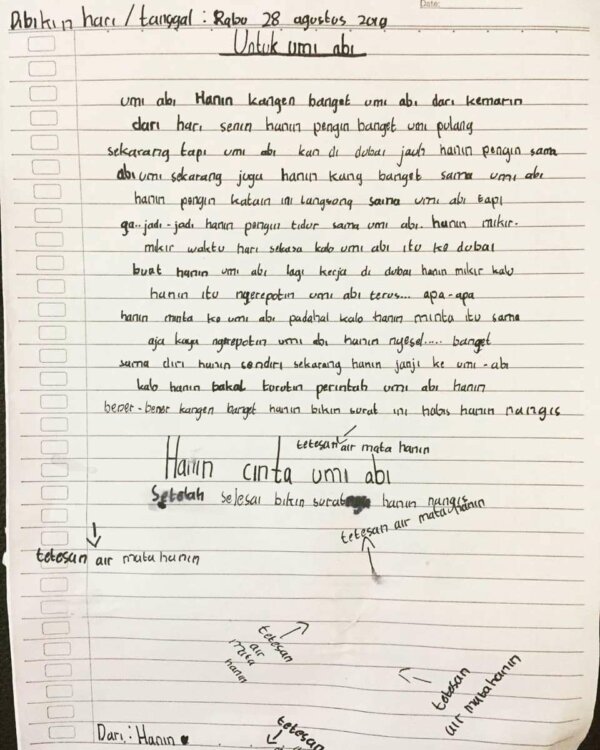 Date:
Dibikin hari / tanggal : Rabo 28 agustus 2019
Untuk umi abi
umi abi Hanin kangen banget umi abi dari kemarin
dari hari senin hanin pengin banget umi pulang
sekarang tapi umi abi kan di dubai jauh hanin pengin sama
abi umi sekarang juga hanin kang banget sama umi abi
hanin pengin katain ini langsong sama umi abi tapi
ga..jadi-jadi hanin pengin tidur sama umi abi. hanin mikir.
mikir waktu hari sekasa kalo umi abi itu ke dubai
buat hanin umi abi lagi kerja di dubai hanin mikir kalo
hanin itu ngerepotin umi abi terus... apa-apa
hanin minta ke umi abi padahal kalo hanin minta itu sama
aja kaya ngerepotin umi abi hanin nyesel..... banget
sama diri hanin sendiri sekarang hanin janji ke umi-abi
kalo hanin bakal torotin perintah umi abi hanin
bener-bener kangen banget hanin bikin surat ini habis hanin nangis
tetesan air mata hanin
Hanin cinta umi abi
Setelah selesai bikin surat hanin nangis
tetesan air mata hanin
tetesan air mata hanin
tetesan
air
mata
hanin
totosan
air mata hanin
Dari : Hanin
tetesan